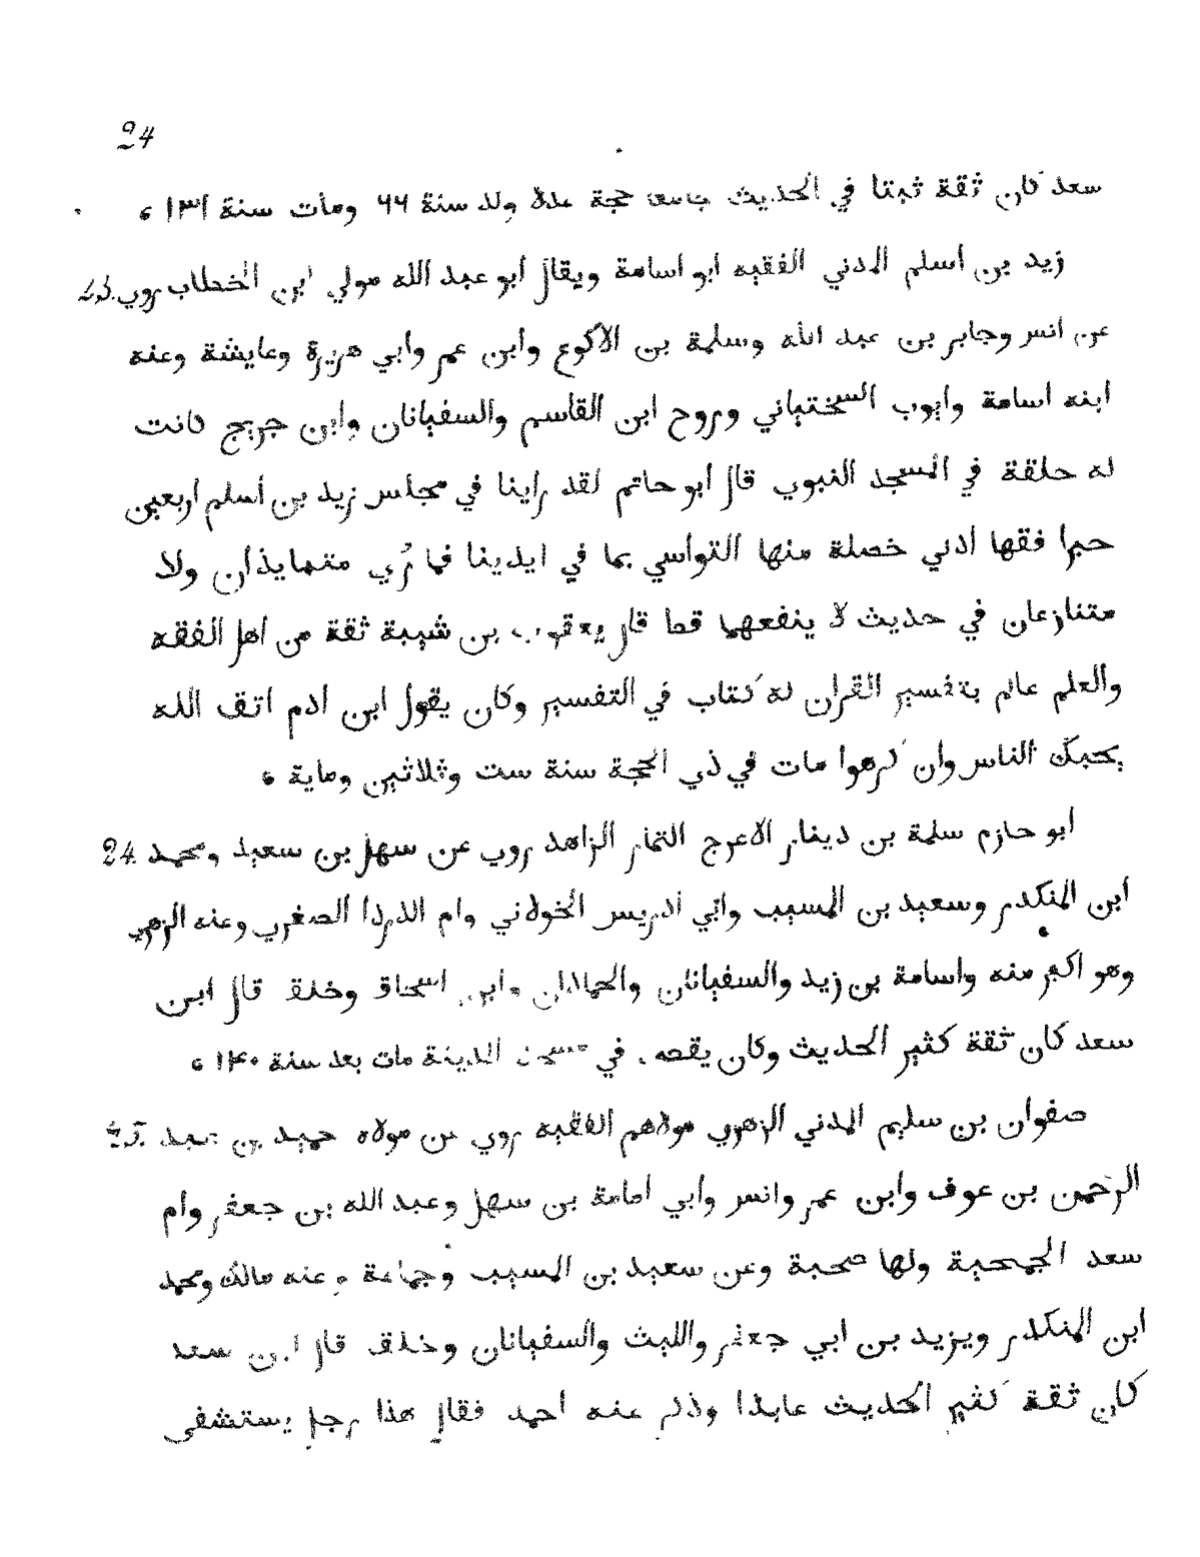 24
سعد كان ثقة ثبتا في الحديث حجة ولد سنة ٦٦ ومات سنة ١٣١ ه
زيد بن اسلم المدني الفقيه ابو اسامة ويقال ابو عبد الله مولي ابن الخطاب روي 23.
عن انس وجابر بن عبد الله وسلمة بن الاكوع وابن عمر وابي هريرة وعايشة وعنه
ابنه اسامة وايوب السختياني وروح ابن القاسم والسفيانان وابن جريج كانت
له حلقة في المسجد النبوي قال ابو حاتم لقد راينا في مجلس زيد بن اسلم اربعين
حبرا فقها ادني خصلة منها التواسي بما في ايدينا فما رُي متمايذان ولا
متنازعان في حديث لا ينفعهما قط قال يعقوب بن شيبة ثقة من اهل الفقه
والعلم عالم بتفسير القران له كتاب في التفسير وكان يقول ابن ادم اتق الله
يحبك الناس وان كرهوا مات في ذي الحجة سنة ست وثلاثين وماية ه
ابو حازم سلمة بن دينار الاعرج التمار الزاهد روي عن سهل بن سعيد ومحمد 24.
ابن المنكدر وسعيد بن المسيب وابي ادريس الخولاني وام الدردا الصغري وعنه الزهري
وهو اكبر منه واسامة بن زيد والسفيانان والحمادان وابن اسحاق وخلق قال ابن
سعد كان ثقة كثير الحديث وكان يقص في مسجد المدينة مات بعد سنة ١٤٠ ه
صفوان بن سليم المدني الزهري مولاهم الفقيه روي عن مولاه حميد بن عبد 25.
الرحمن بن عوف وابن عمر وانس وابي امامة بن سهل وعبد الله بن جعفر وام
سعد الجمحية ولها صحبة وعن سعيد بن المسيب وجماعة وعنه مالك ومحمد
ابن المنكدر ويزيد بن ابي جعفر والليث والسفيانان وخلق قال ابن سعد
كان ثقة كثير الحديث عابدا وذكر عنه احمد فقال هذا رجل يستشفى